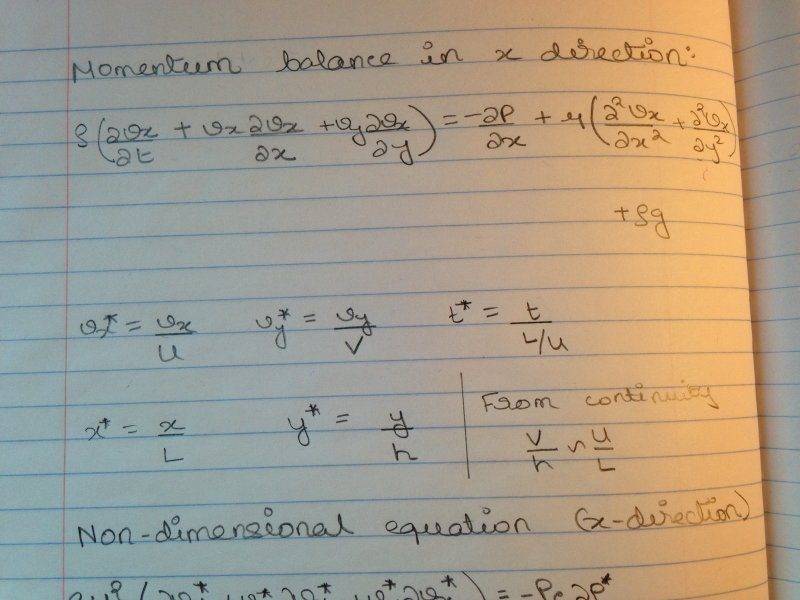 Momentum balance in x direction:
ρ(∂vx/∂t + vx ∂vx/∂x + vy ∂vx/∂y) = -∂P/∂x + μ(∂²vx/∂x² + ∂²vx/∂y²)
+ ρg
vx* = vx/U vy* = vy/V t* = t/L/U
x* = x/L y* = y/h From continuity
V/h ~ U/L
Non-dimensional equation (x-direction)
= -Pc ∂P*